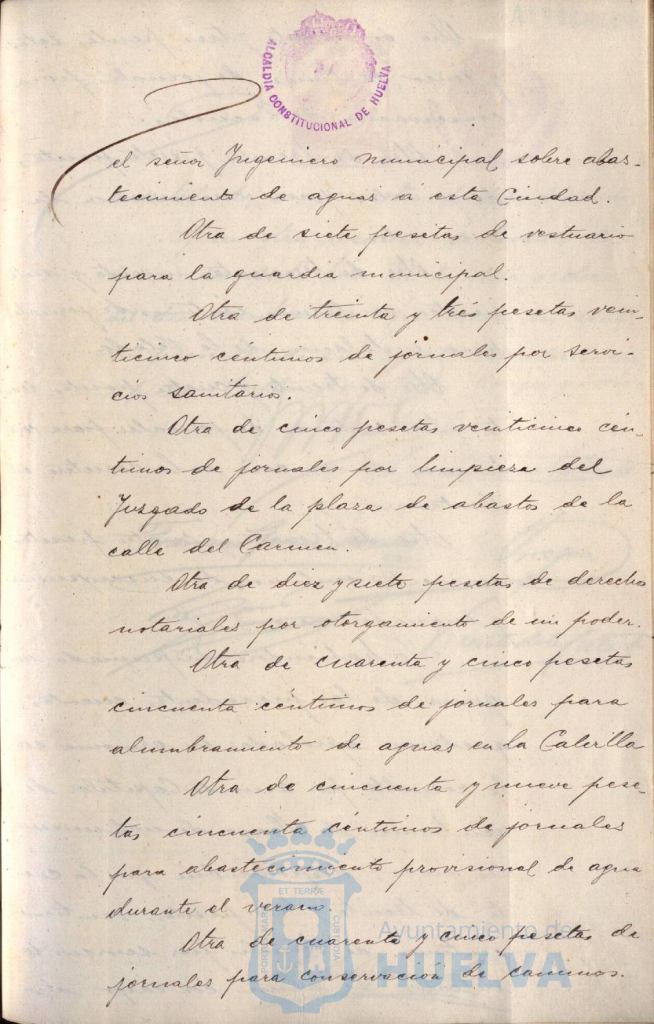 ALCALDIA CONSTITUCIONAL DE HUELVA
el señor Ingeniero municipal sobre abas-
tecimiento de aguas á esta Ciudad.
Otra de siete pesetas de vestuario
para la guardia municipal.
Otra de treinta y tres pesetas vein-
ticinco centimos de jornales por servi-
cios sanitarios.
Otra de cinco pesetas veinticinco cén-
timos de jornales por limpieza del
Juzgado de la plaza de abastos de la
calle del Carmen.
Otra de diez y siete pesetas de derechos
notariales por otorgamiento de un poder.
Otra de cuarenta y cinco pesetas
cincuenta céntimos de jornales para
alumbramiento de aguas en la
Otra de cincuenta y nueve pese-
tas cincuenta céntimos de jornales
para abastecimiento provisional de agua
durante el verano.
Otra de cuarenta y cinco pesetas de
jornales para conservación de caminos.
ET TERRÆ
Ayuntamiento de
HUELVA